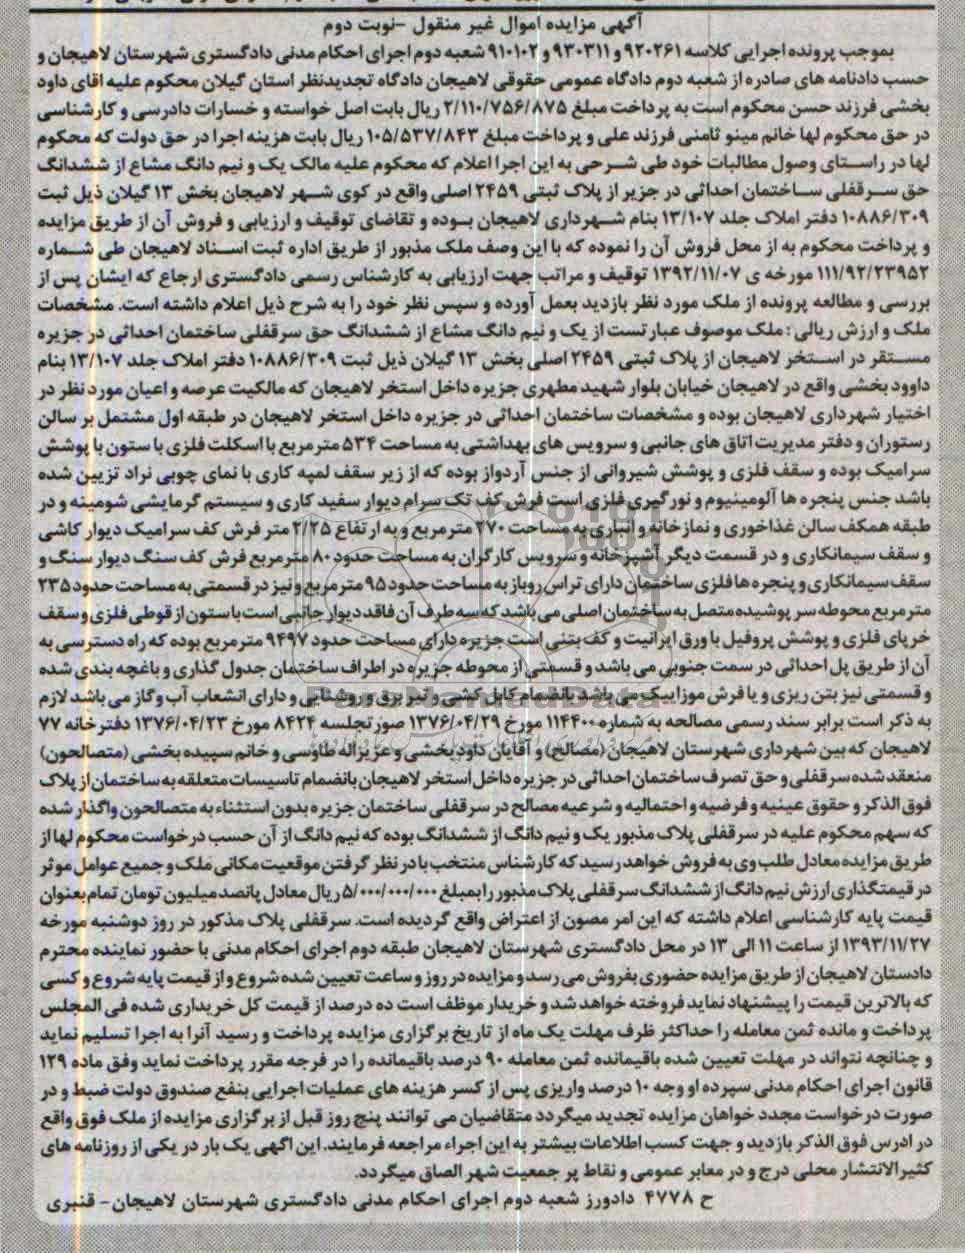 آگهی مزایده اموال غیر منقول -نوبت دوم
بموجب پرونده اجرایی کلاسه ۹۲۰۲۶۱ و ۹۳۰۳۱۱ و ۹۱۰۱۰۲ شعبه دوم اجرای احکام مدنی دادگستری شهرستان لاهیجان و
حسب دادنامه های صادره از شعبه دوم دادگاه عمومی حقوقی لاهیجان دادگاه تجدیدنظر استان گیلان محکوم علیه آقای داود
بخشی فرزند حسن محکوم است به پرداخت مبلغ ۲/۱۱۰/۷۵۶/۸۷۵ ریال بابت اصل خواسته و خسارات دادرسی و کارشناسی
در حق محکوم لها خانم مینو ثامنی فرزند علی و پرداخت مبلغ ۱۰۵/۵۳۷/۸۴۳ ریال بابت هزینه اجرا در حق دولت که محکوم
لها در راستای وصول مطالبات خود طی شرحی به این اجرا اعلام که محکوم علیه مالک یک و نیم دانگ مشاع از ششدانگ
حق سرقفلی ساختمان احداثی در جزیر از پلاک ثبتی ۲۴۵۹ اصلی واقع در کوی شهر لاهیجان بخش ۱۳ گیلان ذیل ثبت
۱۰۸۸۶/۳۰۹ دفتر املاک جلد ۱۳/۱۰۷ بنام شهرداری لاهیجان بوده و تقاضای توقیف و ارزیابی و فروش آن از طریق مزایده
و پرداخت محکوم به از محل فروش آن را نموده که با این وصف ملک مذبور از طریق اداره ثبت اسناد لاهیجان طی شماره
۱۱۱/۹۲/۲۳۹۵۲ مورخه ی ۱۳۹۲/۱۱/۰۷ توقیف و مراتب جهت ارزیابی به کارشناس رسمی دادگستری ارجاع که ایشان پس از
بررسی و مطالعه پرونده از ملک مورد نظر بازدید بعمل آورده و سپس نظر خود را به شرح ذیل اعلام داشته است. مشخصات
ملک و ارزش ریالی : ملک موصوف عبارتست از یک و نیم دانگ مشاع از ششدانگ حق سرقفلی ساختمان احداثی در جزیره
مستقر در استخر لاهیجان از پلاک ثبتی ۲۴۵۹ اصلی بخش ۱۳ گیلان ذیل ثبت ۱۰۸۸۶/۳۰۹ دفتر املاک جلد ۱۳/۱۰۷ بنام
داوود بخشی واقع در لاهیجان خیابان بلوار شهید مطهری جزیره داخل استخر لاهیجان که مالکیت عرصه و اعیان مورد نظر در
اختیار شهرداری لاهیجان بوده و مشخصات ساختمان احداثی در جزیره داخل استخر لاهیجان در طبقه اول مشتمل بر سالن
رستوران و دفتر مدیریت اتاق های جانبی و سرویس های بهداشتی به مساحت ۵۳۴ مترمربع با اسکلت فلزی با ستون با پوشش
سرامیک بوده و سقف فلزی و پوشش شیروانی از جنس آردواز بوده که از زیر سقف لمپه کاری با نمای چوبی نراد تزیین شده
باشد جنس پنجره ها آلومینیوم و نورگیری فلزی است فرش کف تک سرام دیوار سفید کاری و سیستم گرمایشی شومینه و در
طبقه همکف سالن غذاخوری و نمازخانه و انباری به مساحت ۲۷۰ مترمربع و به ارتفاع ۲/۲۵ متر فرش کف سرامیک دیوار کاشی
و سقف سیمانکاری و در قسمت دیگر آشپزخانه و سرویس کارگران به مساحت حدود ۸۰ مترمربع فرش کف سنگ دیوار سنگ و
سقف سیمانکاری و پنجره ها فلزی ساختمان دارای تراس روباز به مساحت حدود ۹۵ مترمربع و نیز در قسمتی به مساحت حدود ۲۳۵
مترمربع محوطه سر پوشیده متصل به ساختمان اصلی می باشد که سه طرف آن فاقد دیوار جانبی است با ستون از قوطی فلزی و سقف
خرپای فلزی و پوشش پروفیل با ورق ایرانیت و کف بتنی است جزیره دارای مساحت حدود ۹۴۹۷ مترمربع بوده که راه دسترسی به
آن از طریق پل احداثی در سمت جنوبی می باشد و قسمتی از محوطه جزیره در اطراف ساختمان جدول گذاری و باغچه بندی شده
و قسمتی نیز بتن ریزی و یا فرش موزاییک می باشد بانضمام کابل کشی و تیر برق و روشنایی و دارای انشعاب آب و گاز می باشد لازم
به ذکر است برابر سند رسمی مصالحه به شماره ۱۱۴۴۰۰ مورخ ۱۳۷۶/۰۴/۲۹ صورتجلسه ۸۴۲۴ مورخ ۱۳۷۶/۰۴/۲۳ دفترخانه ۷۷
لاهیجان که بین شهرداری شهرستان لاهیجان (مصالح) و آقایان داود بخشی و عزیزاله طاوسی و خانم سپیده بخشی (متصالحون)
منعقد شده سرقفلی و حق تصرف ساختمان احداثی در جزیره داخل استخر لاهیجان بانضمام تاسیسات متعلقه به ساختمان از پلاک
فوق الذکر و حقوق عینیه و فرضیه و احتمالیه و شرعیه مصالح در سرقفلی ساختمان جزیره بدون استثناء به متصالحون واگذار شده
که سهم محکوم علیه در سرقفلی پلاک مذبور یک و نیم دانگ از ششدانگ بوده که نیم دانگ از آن حسب درخواست محکوم لها از
طریق مزایده معادل طلب وی به فروش خواهد رسید که کارشناس منتخب با در نظر گرفتن موقعیت مکانی ملک و جمیع عوامل موثر
در قیمتگذاری ارزش نیم دانگ از ششدانگ سرقفلی پلاک مذبور را بمبلغ ۵/۰۰۰/۰۰۰/۰۰۰ ریال معادل پانصد میلیون تومان تمام بعنوان
قیمت پایه کارشناسی اعلام داشته که این امر مصون از اعتراض واقع گردیده است. سرقفلی پلاک مذکور در روز دوشنبه مورخه
۱۳۹۳/۱۱/۲۷ از ساعت ۱۱ الی ۱۳ در محل دادگستری شهرستان لاهیجان طبقه دوم اجرای احکام مدنی با حضور نماینده محترم
دادستان لاهیجان از طریق مزایده حضوری بفروش می رسد و مزایده در روز و ساعت تعیین شده شروع و از قیمت پایه شروع و کسی
که بالاترین قیمت را پیشنهاد نماید فروخته خواهد شد و خریدار موظف است ده درصد از قیمت کل خریداری شده فی المجلس
پرداخت و مانده ثمن معامله را حداکثر ظرف مهلت یک ماه از تاریخ برگزاری مزایده پرداخت و رسید آنرا به اجرا تسلیم نماید
و چنانچه نتواند در مهلت تعیین شده باقیمانده ثمن معامله ۹۰ درصد باقیمانده را در فرجه مقرر پرداخت نماید وفق ماده ۱۲۹
قانون اجرای احکام مدنی سپرده او وجه ۱۰ درصد واریزی پس از کسر هزینه های عملیات اجرایی بنفع صندوق دولت ضبط و در
صورت درخواست مجدد خواهان مزایده تجدید میگردد متقاضیان می توانند پنج روز قبل از برگزاری مزایده از ملک فوق واقع
در ادرس فوق الذکر بازدید و جهت کسب اطلاعات بیشتر به این اجراء مراجعه فرمایند. این اگهی یک بار در یکی از روزنامه های
کثیرالانتشار محلی درج و در معابر عمومی و نقاط پر جمعیت شهر الصاق میگردد.
ح ۴۷۷۸ دادورز شعبه دوم اجرای احکام مدنی دادگستری شهرستان لاهیجان- قنبری